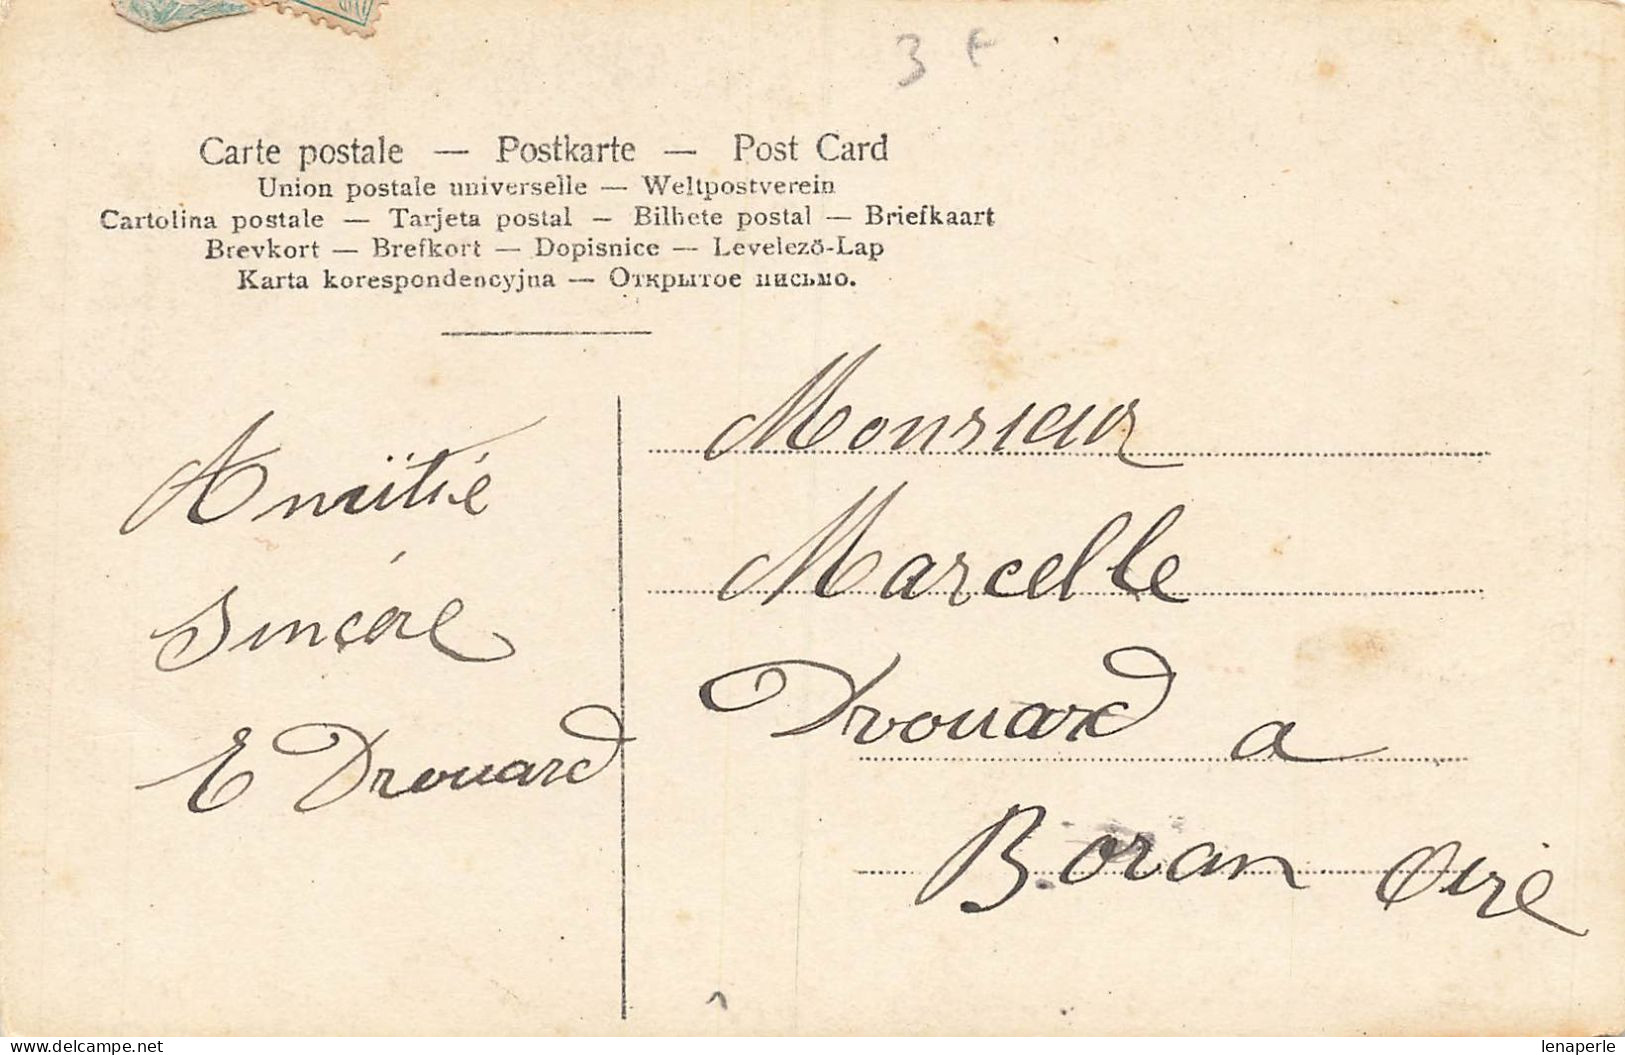 3 F
Carte postale — Postkarte — Post Card
Union postale universelle — Weltpostverein
Cartolina postale — Tarjeta postal — Bilhete postal — Briefkaart
Brevkort — Brefkort — Dopisnice — Levelező-Lap
Karta korespondencyjna — Открытое письмо.
Amitié
Sincére
E Drouard
Monsieur
Marcelle
Drouard a
Boran Oise
delcampe.net
lenaperle